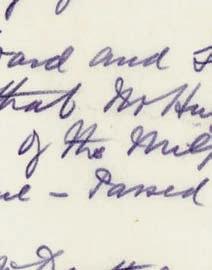 oard and
that Mr Hu
of the Milf
ue - Passed